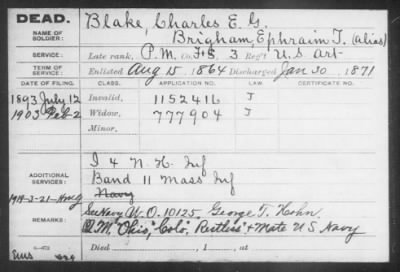 DEAD.
NAME OF SOLDIER:
Blake, Charles E. G.
Brigham, Ephraim T. (alias)
SERVICE:
Late rank, P.M. Co. F&S, 3 Reg't U.S. Art.
TERM OF SERVICE:
Enlisted Aug 15, 1864 Discharged Jan 30, 1871
DATE OF FILING. CLASS. APPLICATION NO. LAW. CERTIFICATE NO.
1893 July 12 Invalid, 1152416 J
1903 Feb-2 Widow, 777904 J
Minor,
ADDITIONAL SERVICES:
I 4 N.H. Inf
Band 11 Mass Inf
Navy
1919-3-21
REMARKS:
See Navy W.O. 10125. George T. Hohn
Q.M. "Ohio," Colo, Restless & Mate U S Navy
Died , 1 , at